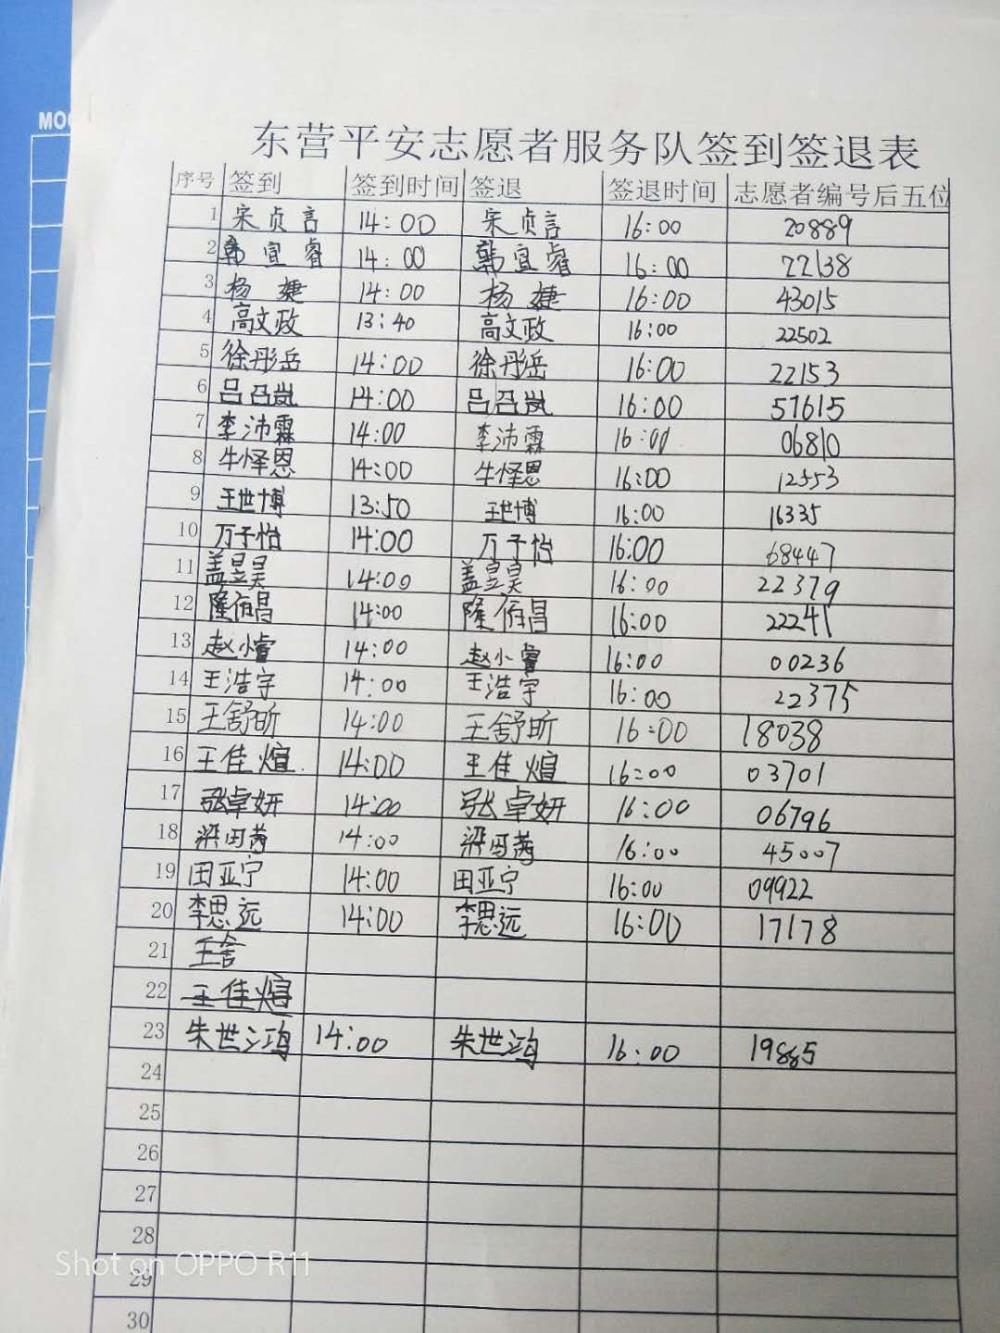 MO
东营平安志愿者服务队签到签退表
序号 签到 签到时间 签退 签退时间 志愿者编号后五位
1 宋贞言 14:00 宋贞言 16:00 20889
2 韩宜睿 14:00 韩宜睿 16:00 22138
3 杨婕 14:00 杨婕 16:00 43015
4 高文政 13:40 高文政 16:00 22502
5 徐彤岳 14:00 徐彤岳 16:00 22153
6 吕召岚 14:00 吕召岚 16:00 51615
7 李沛霖 14:00 李沛霖 16:00 06810
8 牛怿恩 14:00 牛怿恩 16:00 12553
9 王世博 13:50 王世博 16:00 16335
10 万子怡 14:00 万子怡 16:00 68447
11 盖昱昊 14:00 盖昱昊 16:00 22379
12 隆佰昌 14:00 隆佰昌 16:00 22241
13 赵小睿 14:00 赵小睿 16:00 00236
14 王浩宇 14:00 王浩宇 16:00 22375
15 王舒昕 14:00 王舒昕 16:00 18038
16 王佳煊 14:00 王佳煊 16:00 03701
17 张卓妍 14:00 张卓妍 16:00 06796
18 梁丹茜 14:00 梁丹茜 16:00 45007
19 田亚宁 14:00 田亚宁 16:00 09922
20 李思远 14:00 李思远 16:00 17178
21 王舍
22 王佳煊
23 朱世鸿 14:00 朱世鸿 16:00 19885
24
25
26
27
28
Shot on OPPO R11
29
30